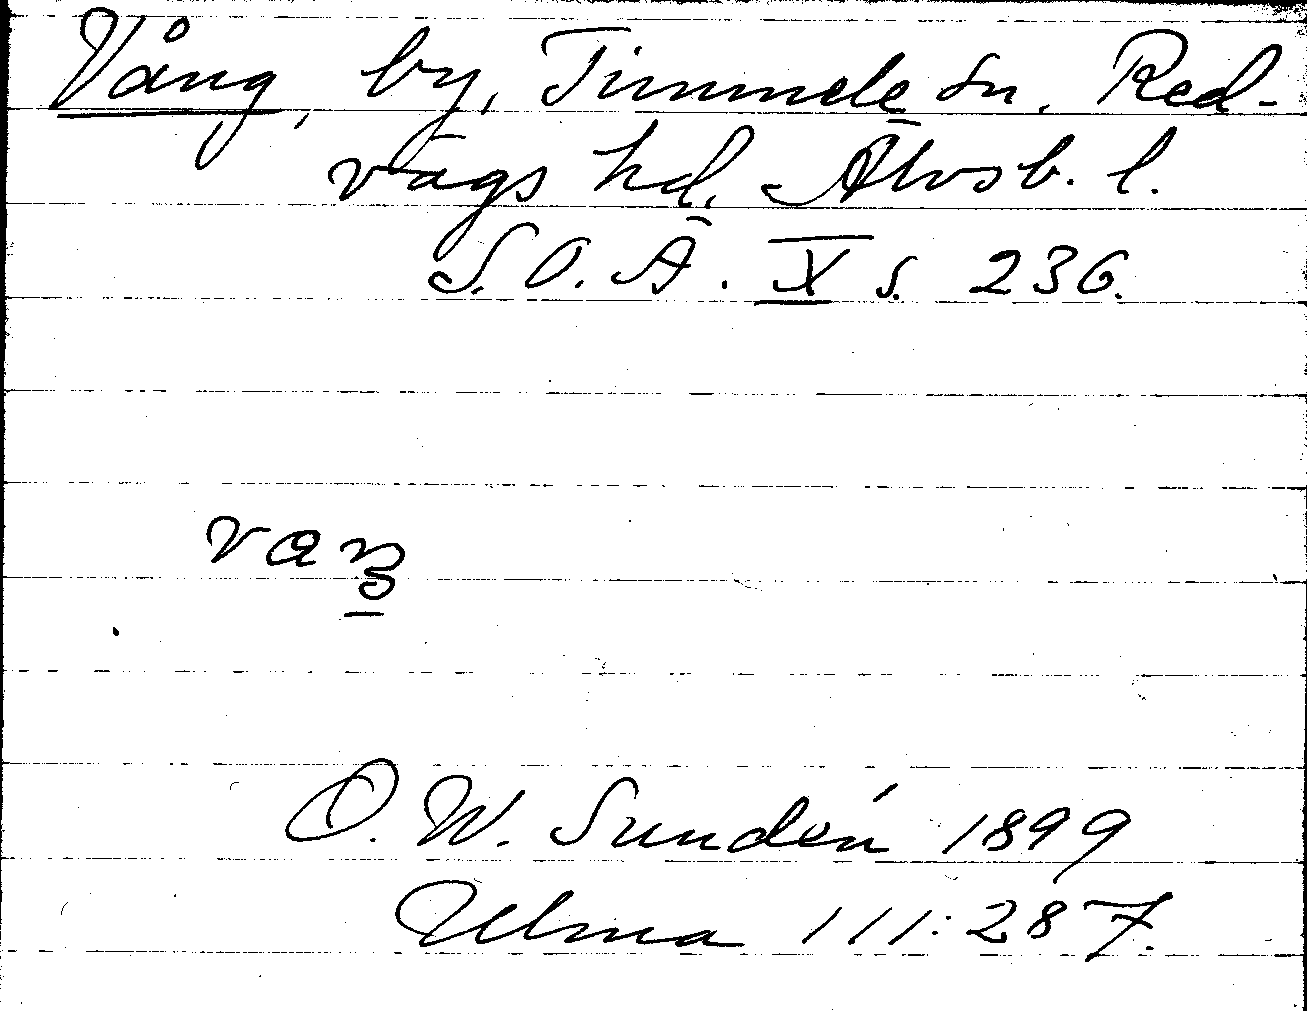 Vång, by, Timmele sn. Red-
vägs hd. Älvsb. l.
S.O.Ä. X s. 236.
vaŋ
D. W. Sundén 1899
Ulma 111:287.